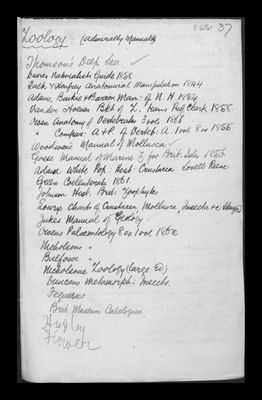 37
Zoology (Admiralty Manual)
Thomson's Deep Sea ✓
Davis Naturalists Guide 1858
Tulk & Henfrey Anatomical Manipulation 1844
Adams, Baikie & Barron Man. of N. H. 1854
Vander Hoeven Hbk of Z. Trans Prof Clark 1858
Owen Anatomy of Vertebrates 3 vols 1868
" Compar: A & P. of Vertebr. A. 1 vol 8vo 1855
Woodward Manual of Mollusca ✓
Gosse Manual of Marine Z for Brit. Isles 1855
Adam White Pop. Hist. Crustacea Lovell Reeve
Green Coelenterata 1861
Johnson Hist. Brit. Zoophytes
Lowry Charts of Crustacea, Mollusca, Insects &c
Jukes Manual of Geology
Owens Palaeontology 8vo 1 vol 1860
Nicholson's "
Balfour "
Nicholsons Zoology (large Ed)
Duncans Metamorph: Insects.
Brit. Museum Catalogues.
Huxley
Flower